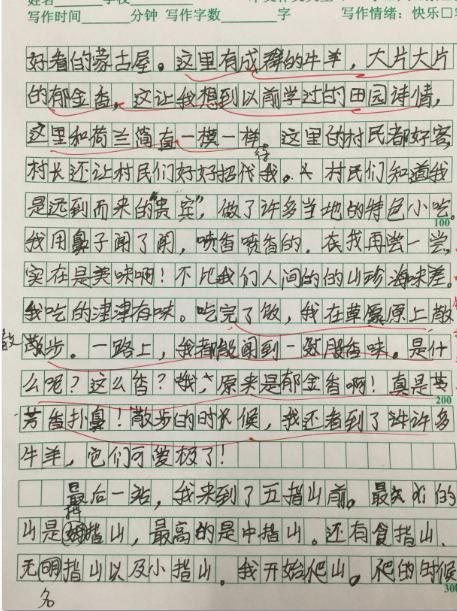 写作时间 分钟 写作字数 字 写作情绪：快乐口
好看的蒙古屋。这里有成群的牛羊，大片大片
的郁金香，这让我想到以前学过的田园诗情，
这里和荷兰简直一模一样 这里的村民都好客，
村长还让村民们好好招代我。村民们知道我
待
是远到而来的“贵宾”，做了许多当地的特色小吃。
100
我用鼻子闻了闻，喷香喷香的。在我再尝一尝，
实在是美味啊！不比我们人间的的山珍海味差。
我吃的津津有味。吃完了饭，我在草原上散
散步。一路上，我都能闻到一股香味。是什
散
么呢？这么香？哦，原来是郁金香啊！真是
200
芳香扑鼻！散步的时候，我还看到了许多
牛羊，它们可爱极了！
最后一站，我来到了五指山前。最
山是拇指山，最高的是中指山。还有食指山、
无明指山以及小指山。我开始爬山。爬的时候
名
300